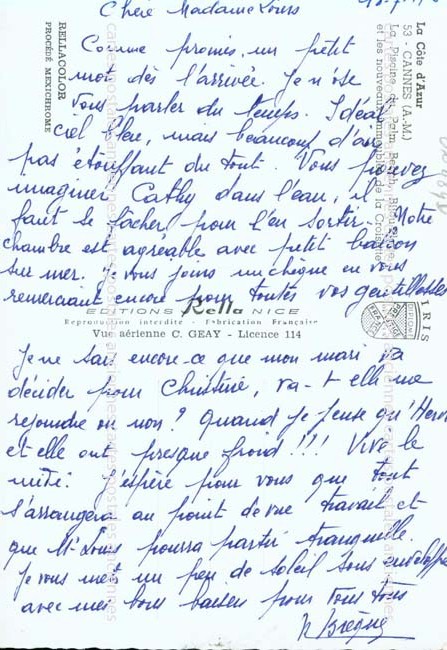 Chère Madame Louis
Comme promis, un petit
mot dès l'arrivée. Je n'ose
vous parler du temps. Idéal
ciel bleu, mais beaucoup d'air
pas étouffant du tout. Vous pouvez
imaginer Cathy dans l'eau, il
faut se fâcher pour l'en sortir. Notre
chambre est agréable avec petit balcon
sur mer. Je vous joins un chèque en vous
remerciant encore pour toutes vos gentillesses
EDITIONS Rella NICE
Reproduction interdite - Fabrication Française
Vue aérienne C. GEAY - Licence 114
Je ne sais encore ce que mon mari va
décider pour Christine, va-t elle me
rejoindre ou non? Quand je pense qu'Hervé
et elle ont presque froid!!! Vive le
midi. J'espère pour vous que tout
s'arrangera au point de vue travail et
que Mr Louis pourra partir tranquille.
Je vous mets un peu de soleil sous enveloppe
avec mes bons baisers pour vous tous
RELLACOLOR
PROCÉDÉ MEXICHROME
La Côte d'Azur
53 - CANNES (A.M.)
La Piscine du Palm Beach,
et les nouveaux immeubles de la Croisette
IRIS